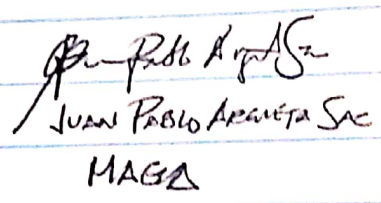 Juan Pablo Argueta Sac
JUAN PABLO ARGUETA SAC
MAGA